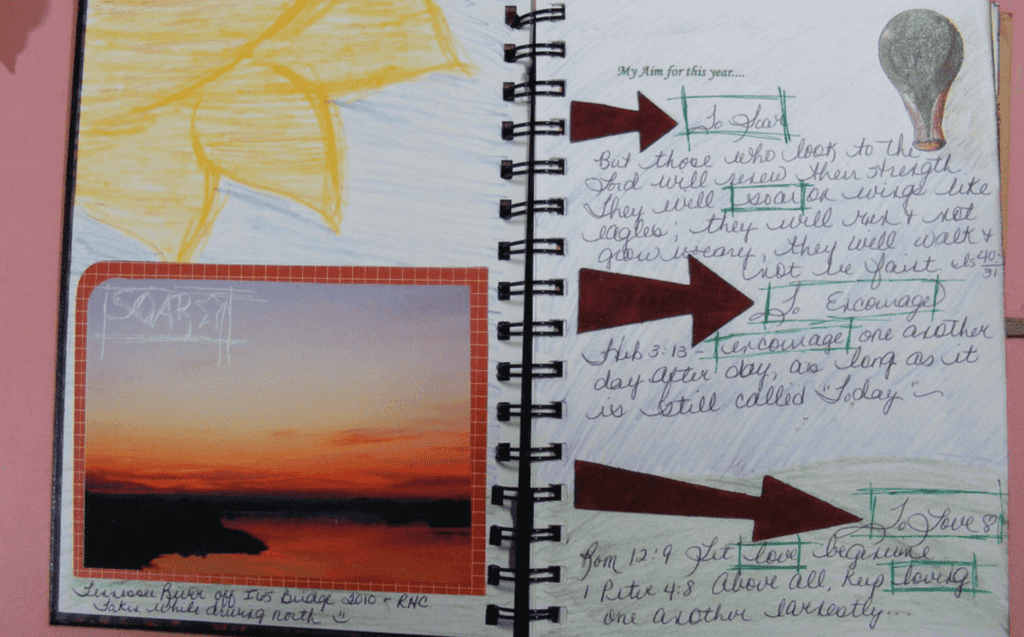 SOAR
Tennessee River off I65 Bridge 2010 - RHC
Taken while driving north
My Aim for this year....
To Soar
But those who look to the
Lord will renew their strength.
They will soar on wings like
eagles; they will run & not
grow weary, they will walk &
not be faint. Is 40:31
To Encourage
Heb 3:13 - encourage one another
day after day, as long as it
is still called "Today" ~
To Love
Rom 12:9 Let love be genuine
1 Peter 4:8 Above all, keep loving
one another earnestly...